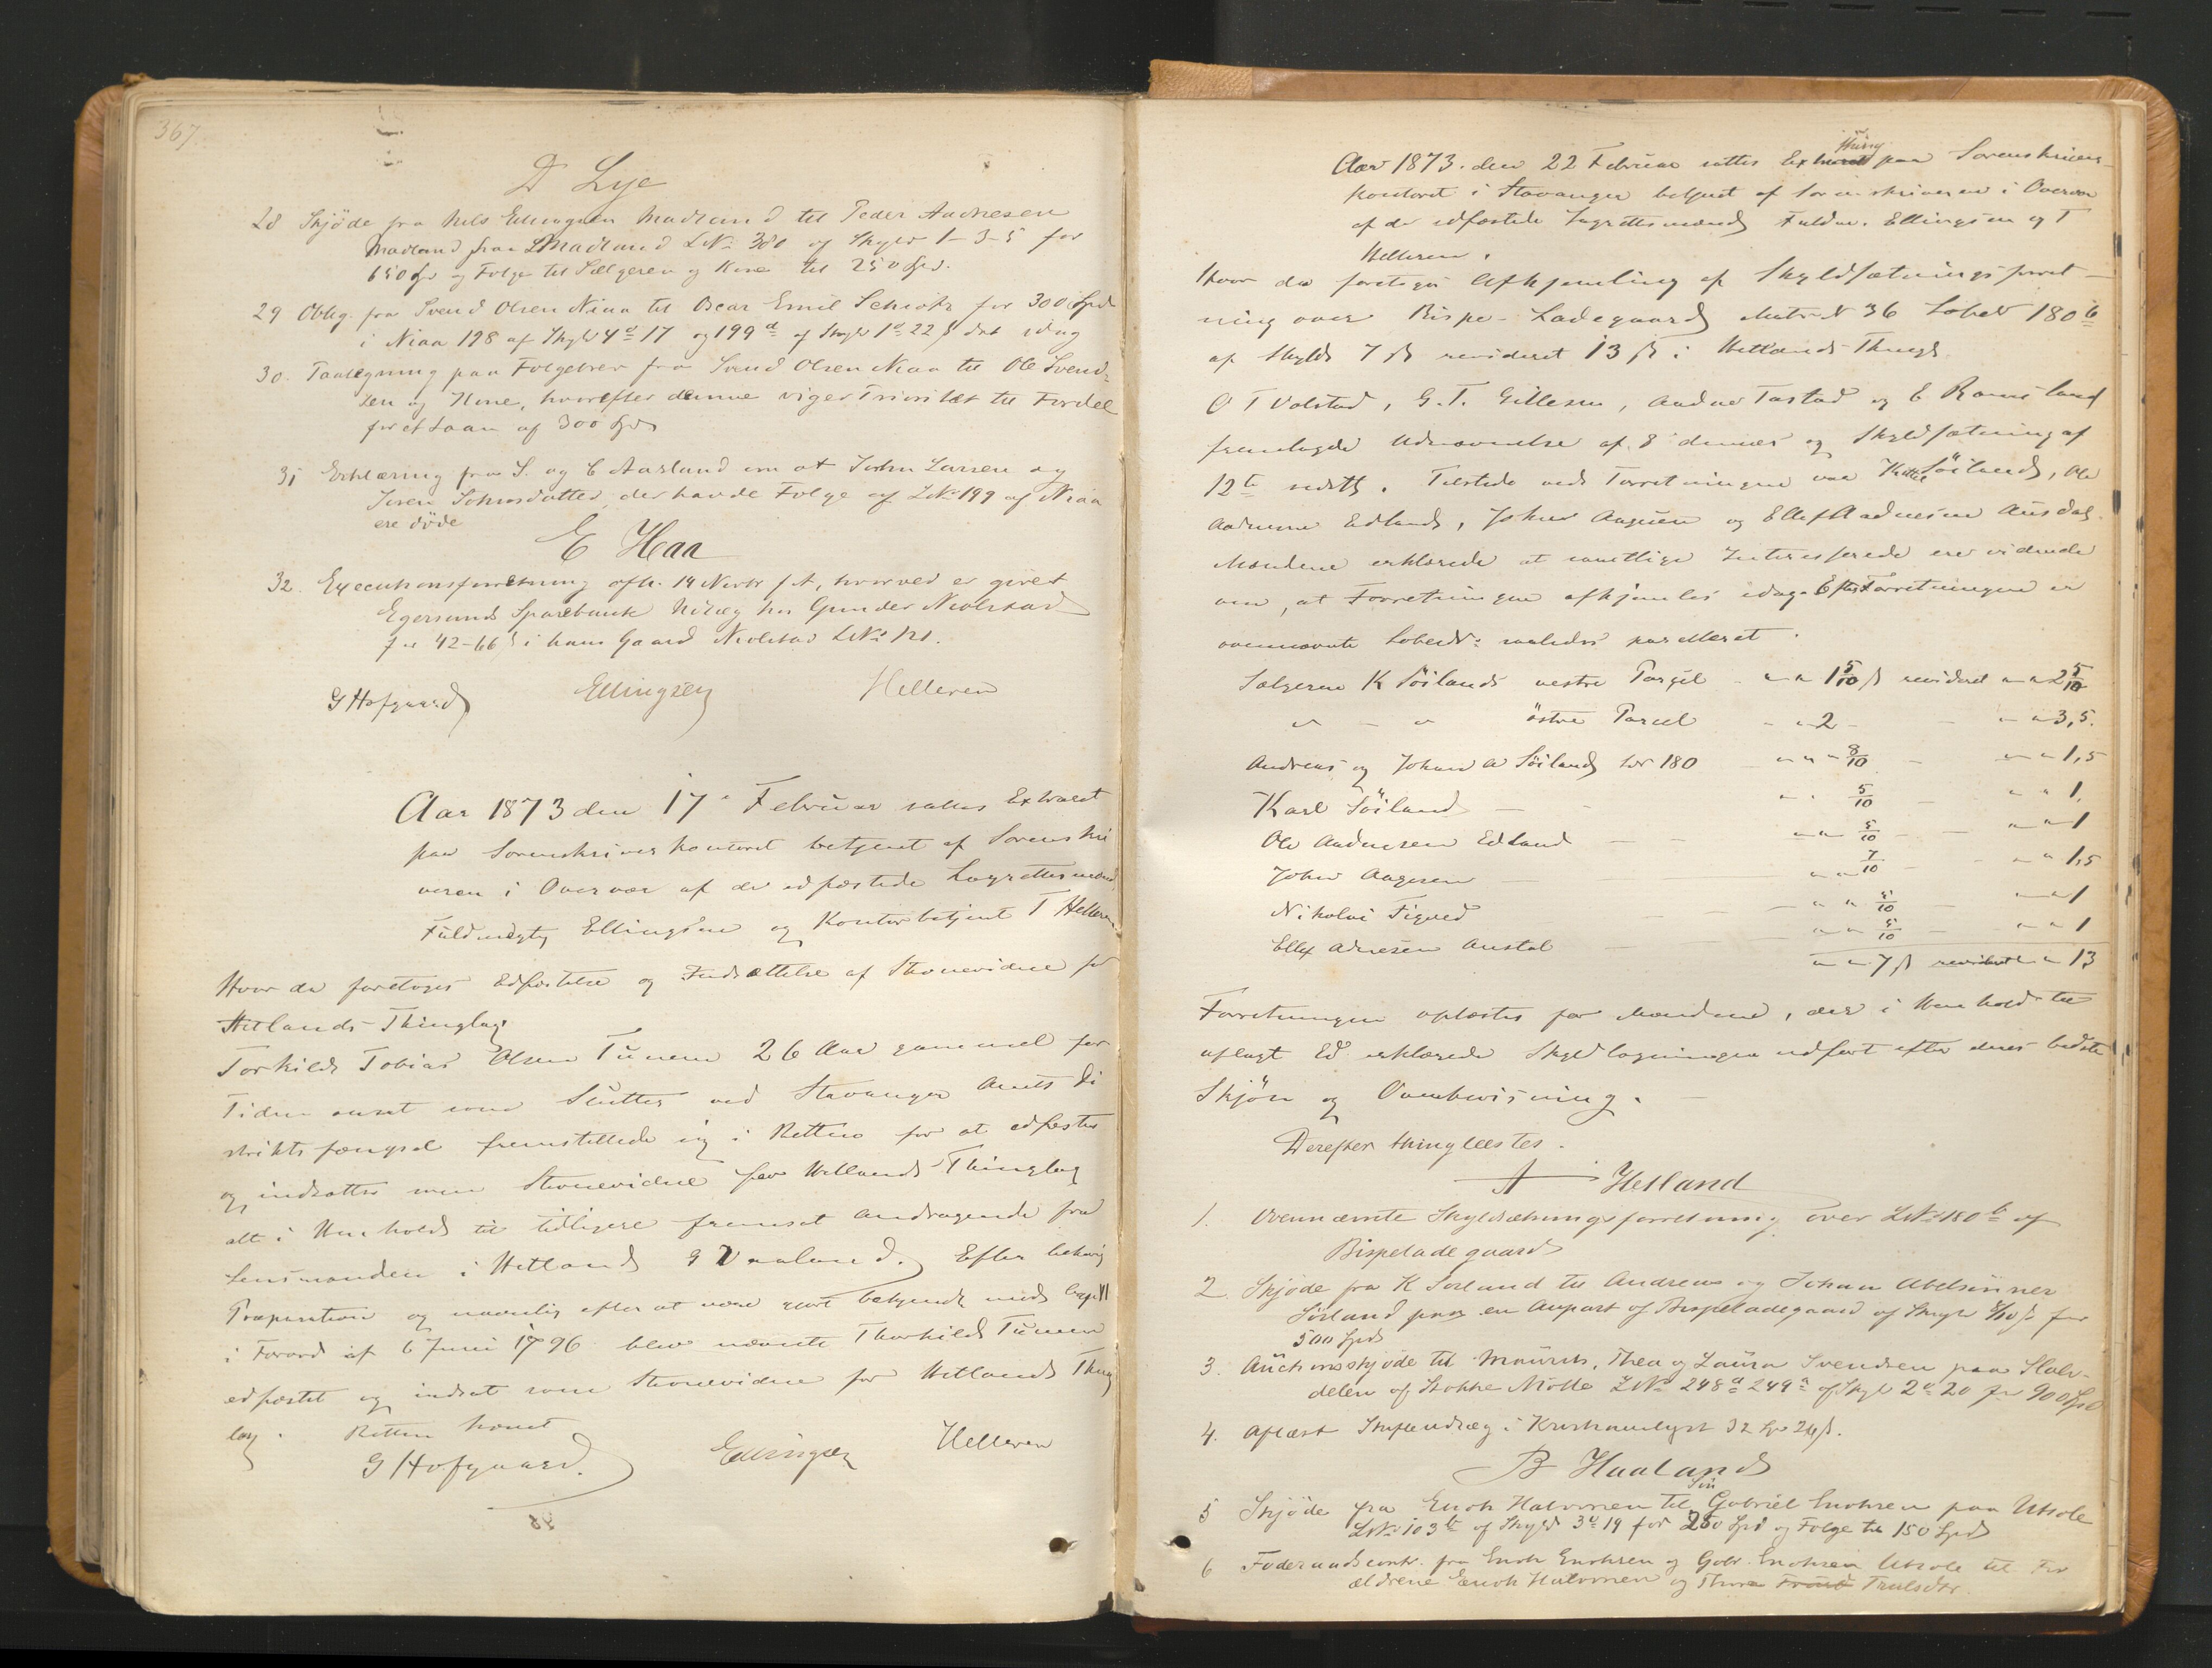 367
D Lye
28 Skjöde fra Nils Ellingsen Madland til Peder Andresen
Madland paa Madland LNo 380 af Skyld 1-3-5 for
650 Spd og Folge til Sælgeren og Kone til 250 Spd.
29 Oblig. fra Svend Olsen Niaa til Oscar Emil Schiotz for 300 Spd
i Niaa 198 af Skyld 4d 17 og 199a af Skyld 1d 22 ß dat idag
30. Paategning paa Folgebrev fra Svend Olsen Niaa til Ole Svend-
sen og Kone, hvorefter denne viger Prioritet til Fordel
for et Laan af 300 Spd
31 Erklæring fra S. og C Aarsland om at John Larsen og
Johnsdatter, der havde Folge af LNo 199 af Niaa
ere döde
E Haa
32. Executionsforretning afh. 14 Novbr f A, hvorved er givet
Egersunds Sparebank Udlæg hos Gunder Nevlstad
for 42-66 ß i hans Gaard LNo 121.
G Hofgaard Ellingsen Helleren
Aar 1873 den 17 Februar sattes Extraret
paa Sorenskriverkontoret betjent af Sorenskri
veren i Overvær af de edfæstede Lagrettesmænd
Fuldmægtig Ellingsen og Kontorbetjent T Helleren
Hvor da foretoges Edfæstelse og Indsættelse af Stevnevidne for
Hetlands Thinglag
Torkild Tobias Olsen Tunem 26 Aar gammel for
Tiden ansat som Slutter ved Stavanger Amts Di
striktsfængsel fremstillede sig i Retten for at edfæstes
og indsættes som Stevnevidne for Hetlands Thinglag
alt i Henhold til tidligere fremsat Andragende fra
Lensmanden i Hetland G Vaaland. Efter behørig
Præparation og navnlig efter at være gjort bekjendt med
i Forord af 6 Juni 1796 blev nævnte Thorkild Tunem
edfæstet og indsat som Stevnevidne for Hetlands Thing
lag. Retten hævet
G Hofgaard. Ellingsen Helleren
Aar 1873. den 22 Februar sattes Extraret Thing paa Sorenskriver-
kontoret i Stavanger betjent af Sorenskriveren i Overvær
af de edfæstede Lagrettesmænd Fuldm. Ellingsen og T
Helleren.
Hvor da foretoges Afhjemling af Skyldsætningsforret-
ning over Bispe-Ladegaard Matr N 36 Lobe N 180b
af Skyld 7 ß revideret 13 ß i Hetlands Thingl.
O T Volstad, G. T. Gillesen, Andres Tastad og E Ramsland
fremlagde Udnævnelse af 8 dennes og Skyldsætning af
12te sidstl. Tilstede ved Forretningen var Kitle Söiland, Ole
Aadnesen Edland, Johan Aagesen og Ellef Aadnesen Ausdal.
Mændene erklærede at samtlige Interesserede ere vidende
om, at Forretningen afhjemles idag. Efter Forretningen er
ovennævnte Lobe N: saaledes parcelleret.
Sælgeren K Söilands vestre Parcel - " " 1 5/10 ß revideret " " 2 5/10
" - " östre Parcel - " 2 - - " " 3,5.
Andreas og Johan A Söiland Lbr 180 - " " " 8/10 - " " 1,5
Karl Söiland - - " . 5/10 - " " 1,
Ole Aadnesen Edland - - " " 5/10 - - " " 1
Johan Aagesen - - " " 7/10 - - " " 1,5
Nikolai Figved - - " " 5/10 - " " 1
Ellef Adnesen Austal - - " " 5/10 - " " 1
" " 7 ß revideret " " 13
Forretningen oplæstes for Mændene, der i Henhold til
aflagt Ed erklærede Skyldlægningen udført efter deres bedste
Skjön og Overbevisning. -
Derefter thinglæstes.
A Hetland
1. Ovennævnte Skyldsætningsforretning over LNo 180b af
Bispeladegaard
2. Skjöde fra K Soiland til Andreas og Johan Abelsönner
Söiland paa en Anpart af Bispeladegaard af Skyld 8/10 ß for
500 Spd
3. Auctionsskjöde til Maurits, Thea og Laura Svendsen paa Halv-
delen af Stokke Mölle LNo 248a 249a af Skyld 2d 20 for 900 Spd
4. Aflæst i 32 Spd 24 ß.
B Haaland
5 Skjöde fra Enok Halvorsen til Sön Gabriel Enoksen paa Utsole
LNo 103b af Skyld 3d 19 for 250 Spd og Folge til 150 Spd
6 Föderaadscontr. fra Enok Enoksen og Gabr. Enoksen Utsole til For
ældrene Enok Halvorsen og Thora Truls Trulsdtr.